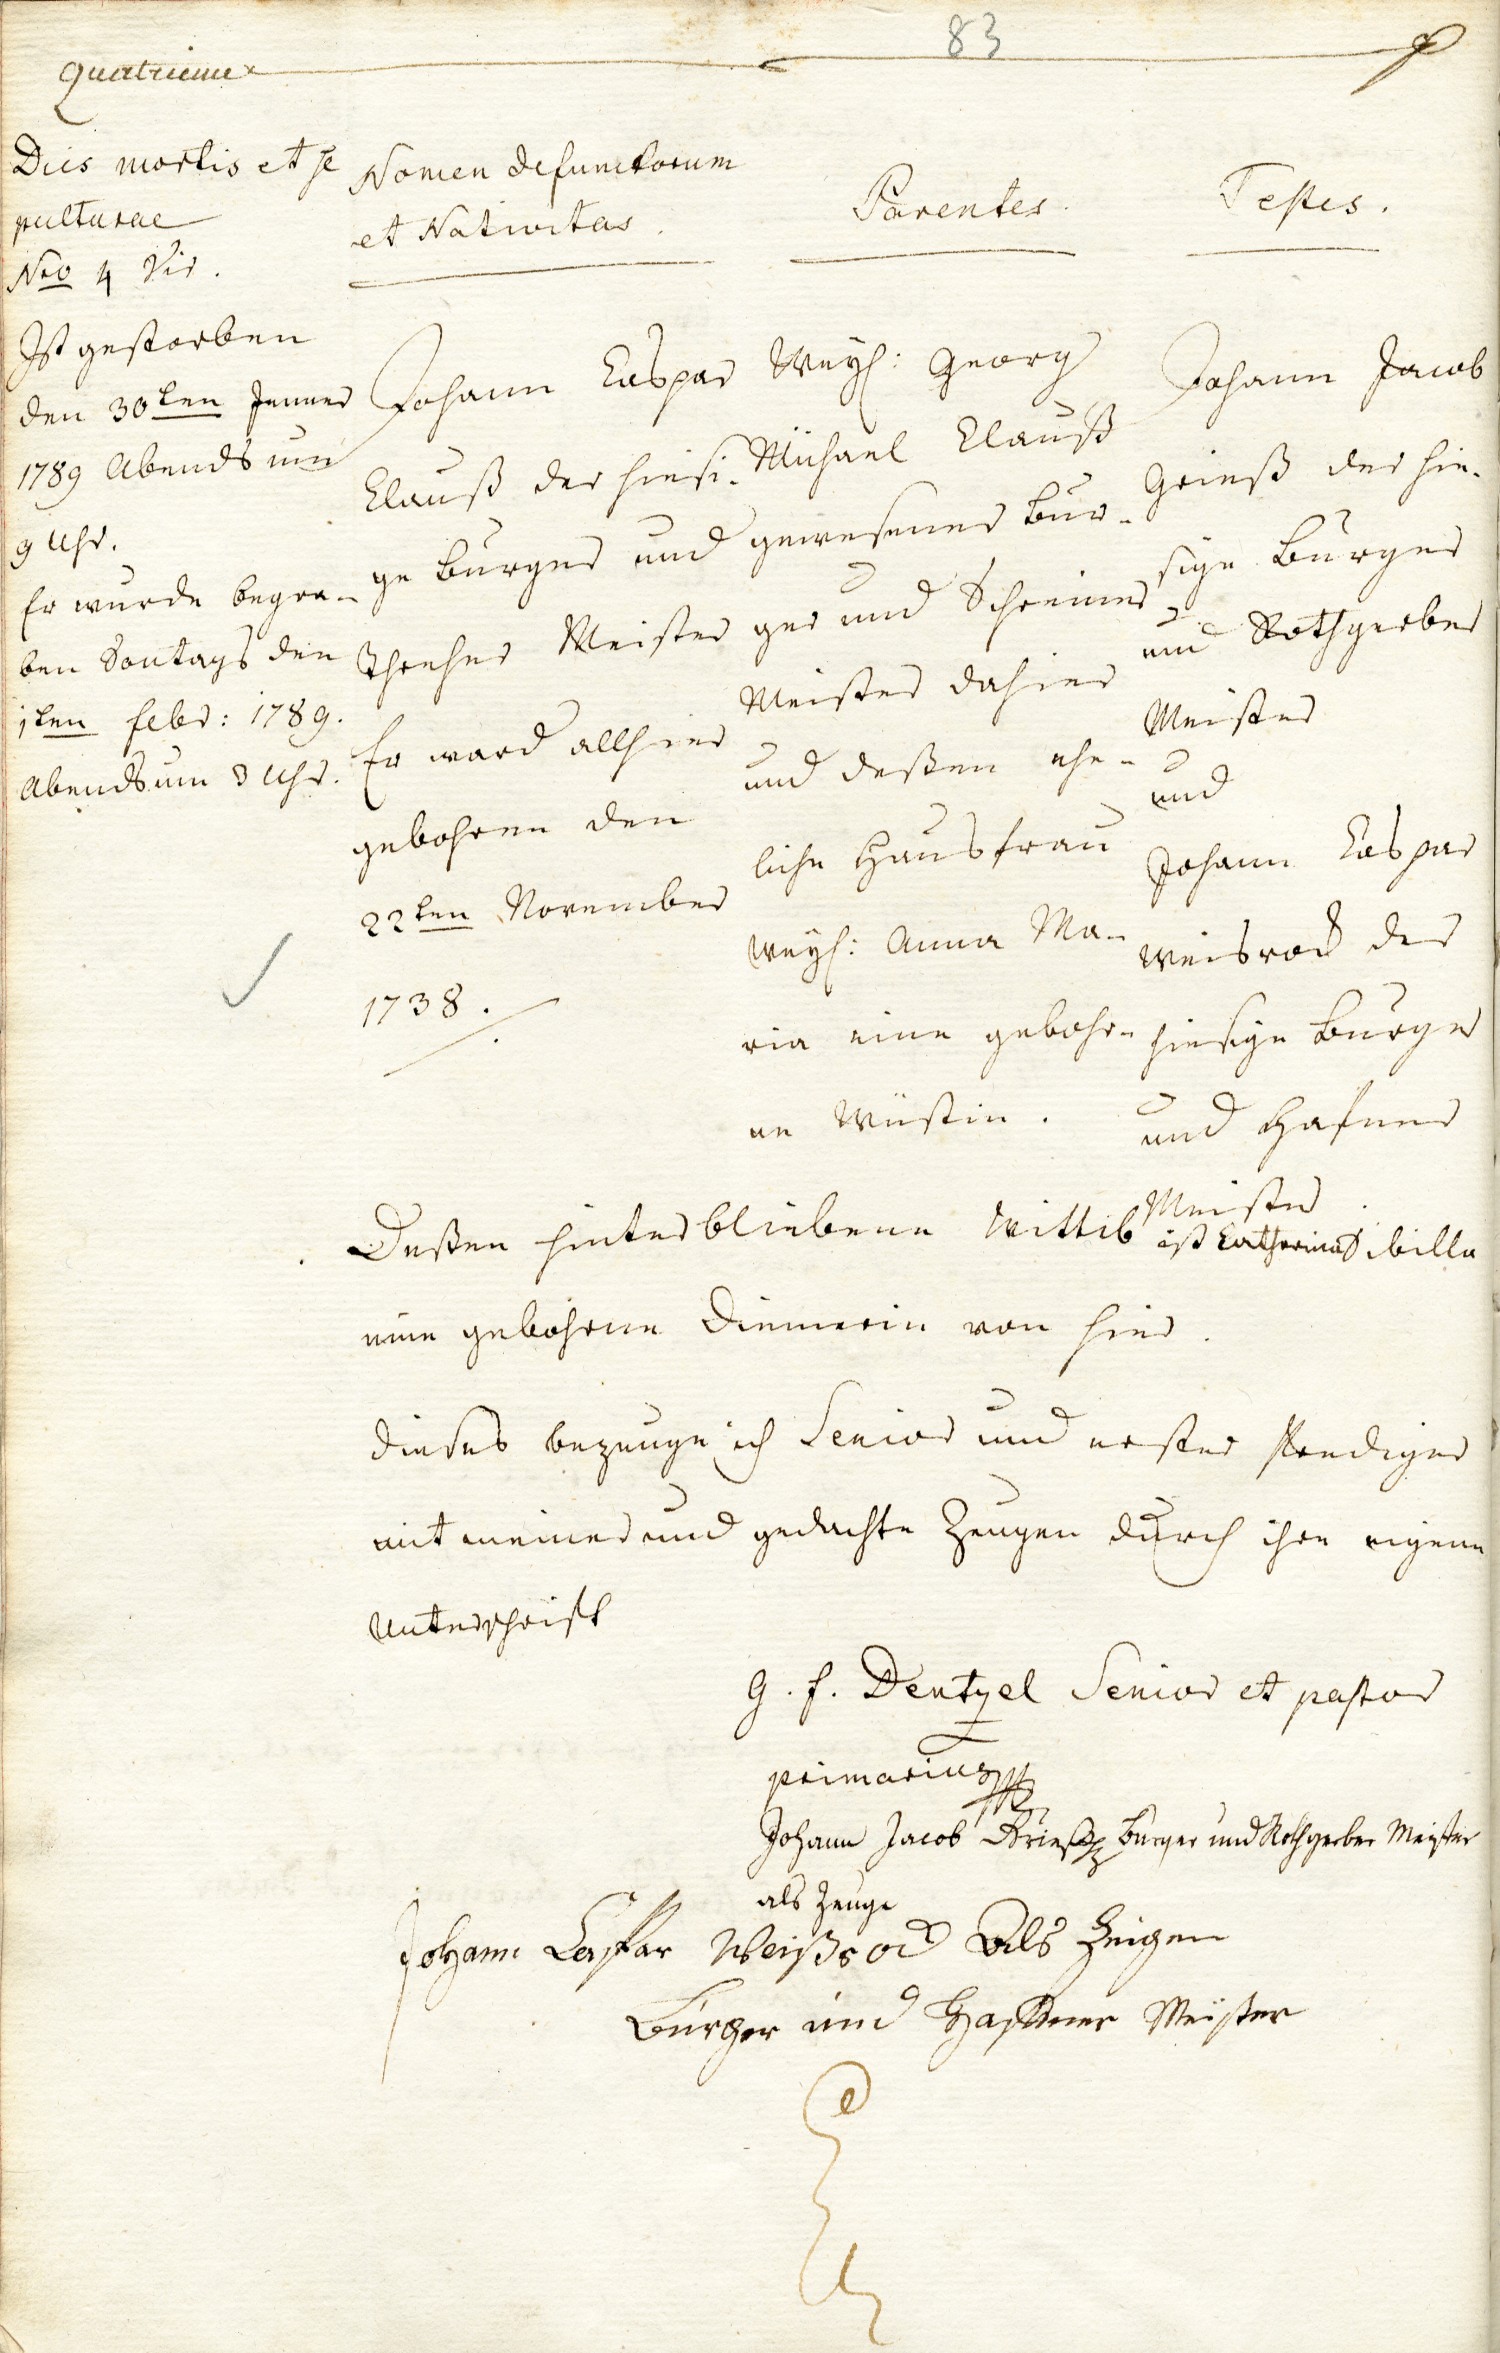 83
Quatrieme
Dies mortis et se
pulturae
Nro 4 Vir.
Ist gestorben
den 30ten Jenner
1789 Abends um
9 Uhr.
Er wurde begra-
ben Sontags den
1ten febr: 1789.
Abends um 3 Uhr.
Nomen defunctorum
et Nativitas.
Johann Caspar
Clauß der hiesi-
ge burger und
Meister
Er ward allhier
gebohren den
22ten November
1738.
Parentes.
Weyl: Georg
Michael Clauß
gewesener bur-
ger und Schreiner
Meister dahier
und deßen ehe-
liche Hausfrau
weyl: Anna Ma-
ria eine gebohr-
ne Wüstin.
Testes.
Johann Jacob
Grieß der hie-
sige burger
und Rothgerber
Meister
und
Johann Caspar
Weisrod der
hiesige burger
und Hafner
Meister.
Deßen hinterbliebene Wittib ist Catharina Sibilla
eine gebohrne Diemerin von hier.
dieses bezeuge ich Senior und erster Prediger
mit meiner und gedachte Zeugen durch ihre eigene
Unterschrift
G. f. Dentzel Senior et pastor
primarius
Johann Jacob Grieß burger und Rothgerber Meister
als Zeuge
Johann Caspar Weißrod als Zeigen
Bürger und Haffner Meister